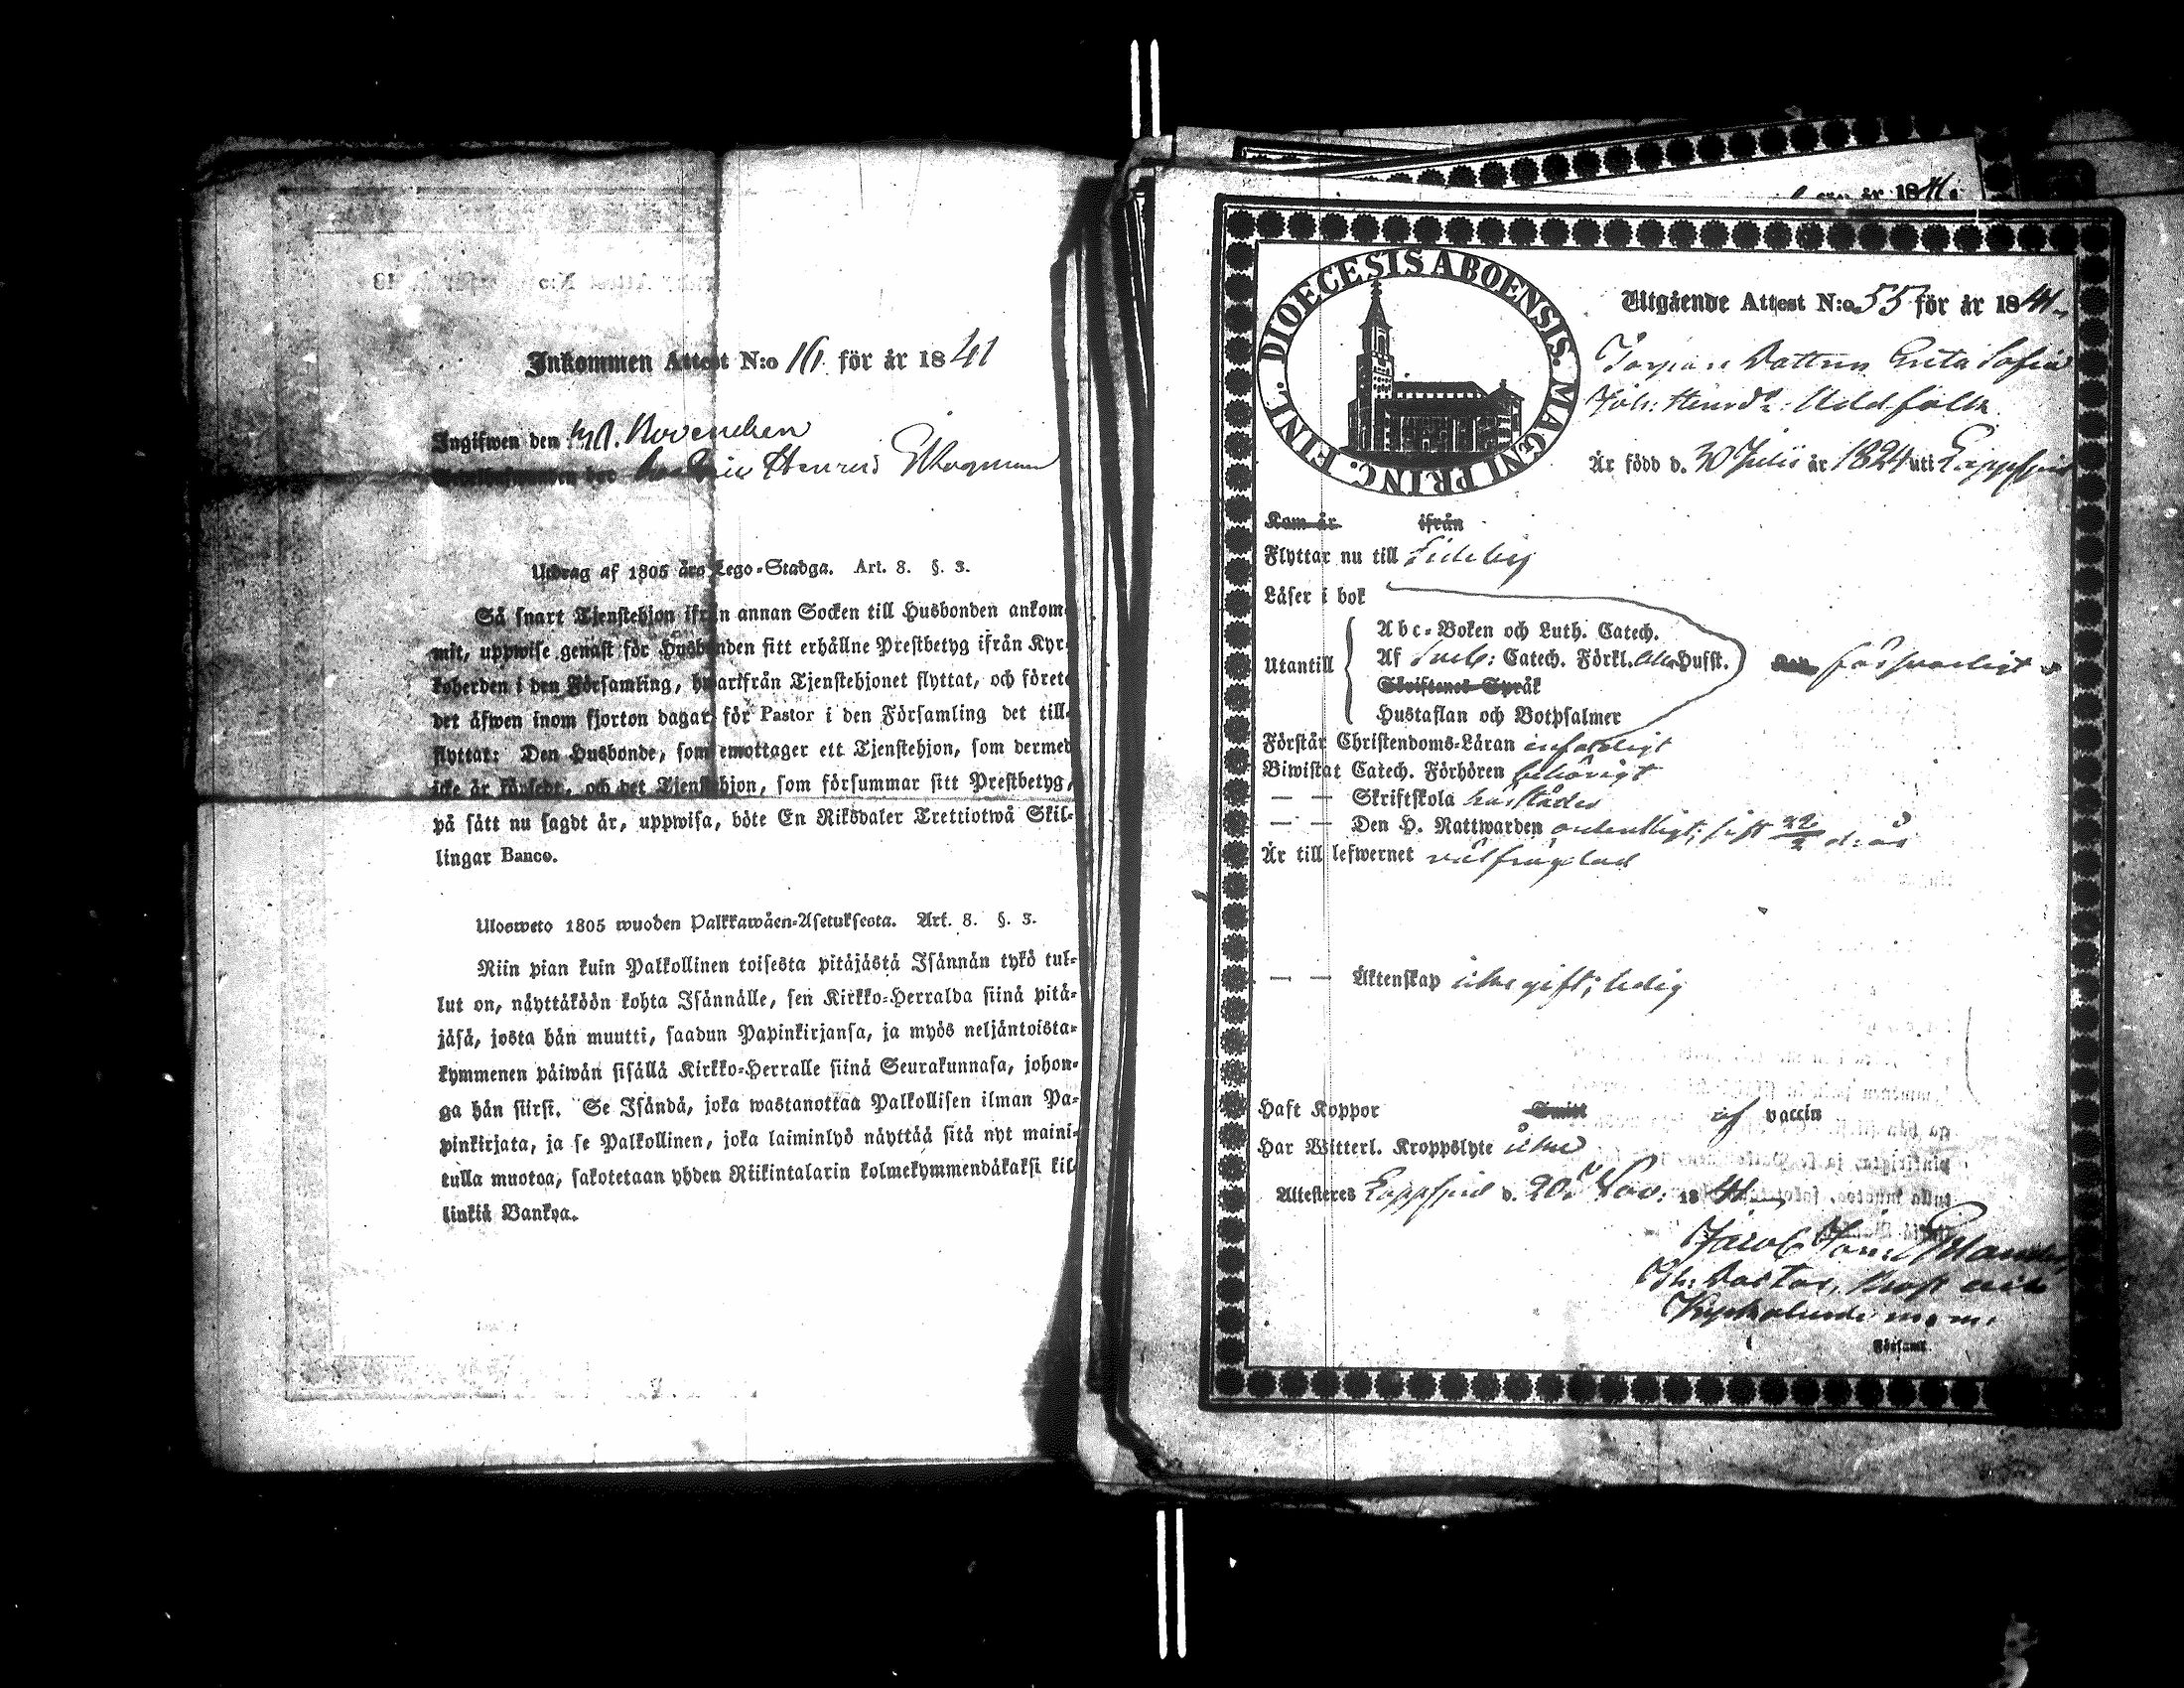 Inkommen Attest N:o 16 för år 1841
Ingifwen den
Henric Skogman
Utdrag af 1805 års Lego-Stadga. Art. 8. §. 3.
Så snart Tjenstehjon ifrån annan Socken till Husbonden ankom-
mit, uppwise genast för Husbonden sitt erhållne Prestbetyg ifrån Kyr-
koherden i den Församling, hwarifrån Tjenstehjonet flyttat, och förete
det äfwen inom fjorton dagar för Pastor i den Församling det till-
flyttar: Den Husbonde, som emottager ett Tjenstehjon, som dermed
icke är försedt, och det Tjenstehjon, som försummar sitt Prestbetyg,
på sätt nu sagdt är, uppwisa, böte En Riksdaler Trettiotwå Skil-
lingar Banco.
Ulosweto 1805 wuoden Palkkawäen-Asetuksesta. Art. 8. §. 3.
Niin pian kuin Palkollinen toisesta pitäjästä Isännän tykö tul-
lut on, näyttäköön kohta Isännälle, sen Kirkko-Herralda siinä pitä-
jäsä, josta hän muutti, saadun Papinkirjansa, ja myös neljäntoista-
kymmenen päiwän sisällä Kirkko-Herralle siinä Seurakunnasa, johon-
ga hän siirsi. Se Isändä, joka wastanottaa Palkollisen ilman Pa-
pinkirjata, ja se Palkollinen, joka laiminlyö näyttää sitä nyt maini-
tulla muotoa, sakotetaan yhden Riikintalarin kolmekymmendäkaksi kil-
linkiä Bankoa.
för år 1841.
DIOECESIS ABOENSIS. MAGNI PRINC. FINL.
Utgående Attest N:o 55 för år 1841.
Dottren Greta Sofia
Joh: Henrsdr: Uddfolk
Är född d. 30 Julii år 1824 uti Lappfjerd
Kom år ifrån
Flyttar nu till Sideby
Läser i bok
Utantill
Abc-Boken och Luth. Catech.
Af Sveb: Catech. Förkl. Hufst.
Skriftenes Språk
Hustaflan och Botpsalmer
försvarligt
Förstår Christendoms-Läran enfaldigt
Biwistat Catech. Förhören behörigt
— — Skriftskola
— — Den H. Nattwarden ordentligt; sist d: år
Är till lefwernet välfrägdad
— — Äktenskap icke gift; ledig
Haft Koppor Smitt af vaccin
Har Witterl. Kroppslyte icke
Attesteres Lappfjerd d. 20 Nov: 1841
Jacob
Kyrkoherde m. m.
Församl.